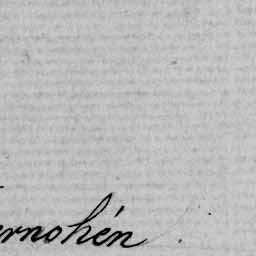 ernohén